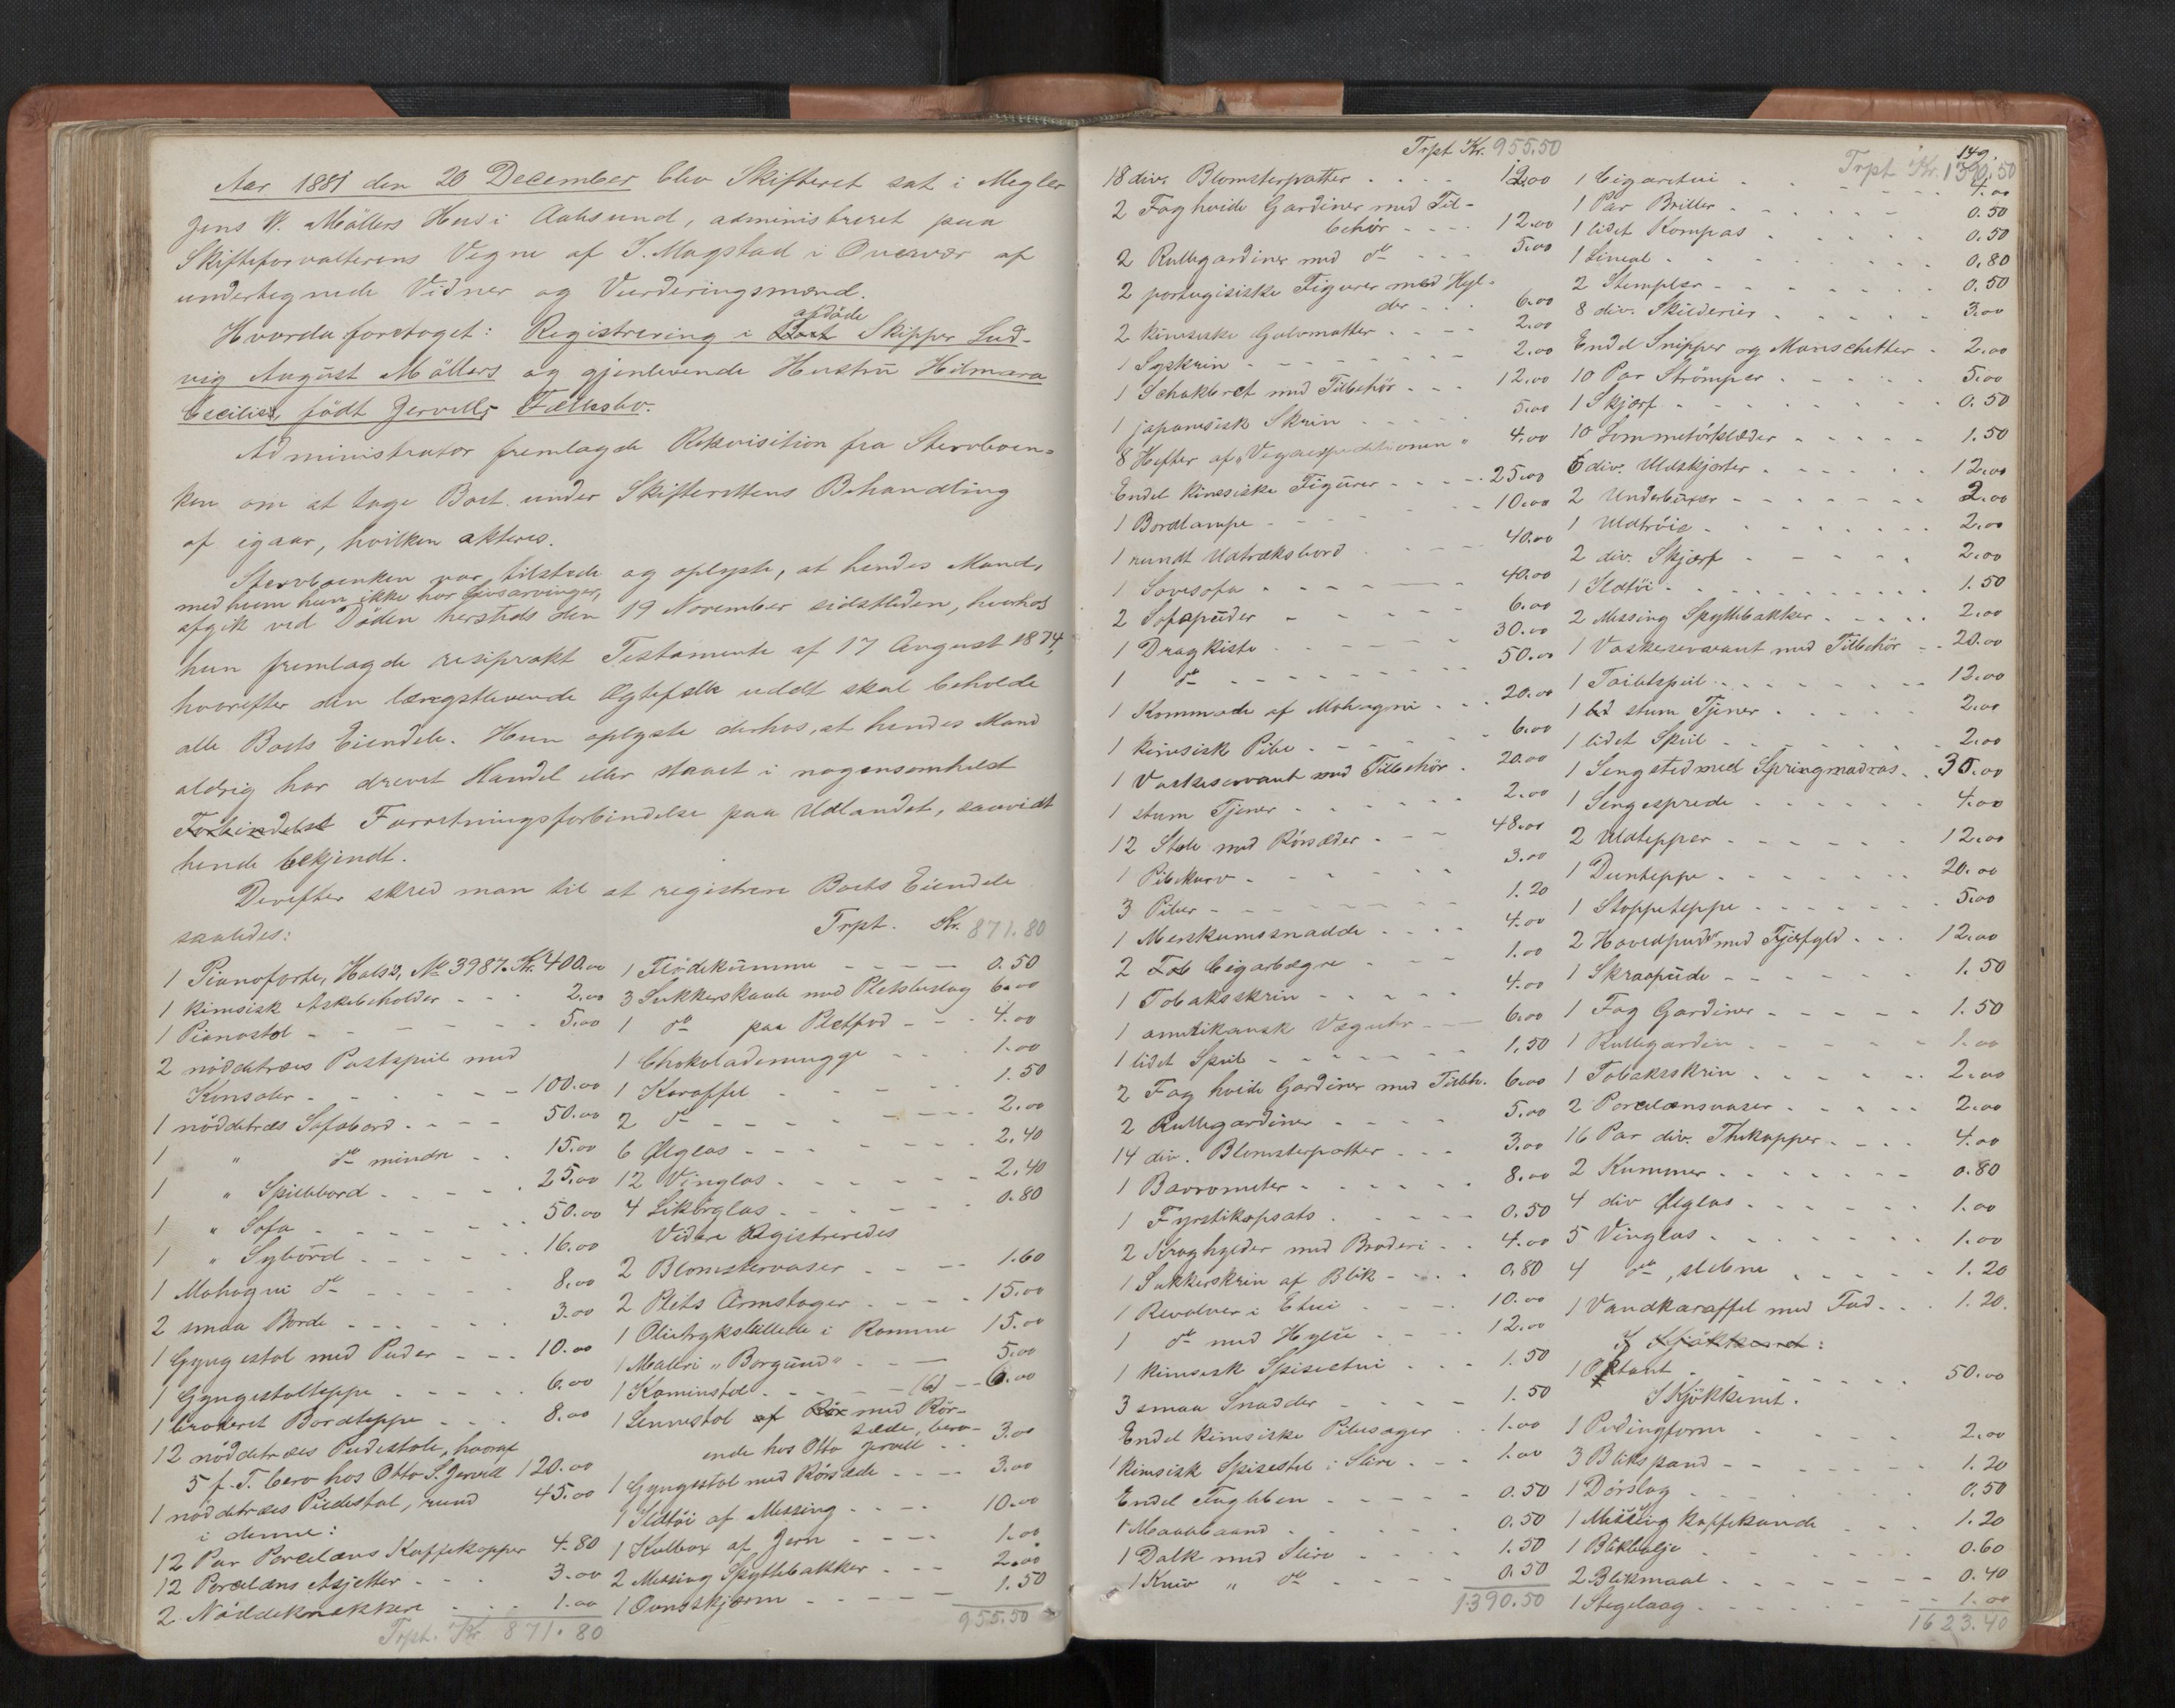 Aar 1881 den 20 December blev Skifteret sat i Megler
Jens W. Möllers Hus i Aalesund, administreret paa
Skifteforvalterens Vegne af I. Magstad i Overvær af
undertegnede Vidner og Vurderingsmænd.
Hvorda foretoges: Registrering i afdöde Skipper Lud-
vig August Möllers og gjenlevende Hustru Hilmara
Cecilie, födt Jervells Fællesbo.
Administrator fremlagde Rekvisition fra Stervboen-
ken om at tage Boet under Skifterettens Behandling
af igaar, hvilken akteres.
Stervboenken var tilstede og oplyste, at hendes Mand,
med hvem hun ikke har Livsarvinger,
afgik ved Döden hersteds den 19 November sidstleden, hvorhos
hun fremlagde resiprokt Testamente af 17 August 1874,
hvorefter den længstlevende Ægtefælle uddelt skal beholde
alle Boets Eiendele. Hun oplyste derhos, at hendes Mand
aldrig har drevet Handel eller staaet i nogensomhelst
Forbindelse Forretningsforbindelse paa Udlandet, saavidt
hende bekjendt.
Derefter skred man til at registrere Boets Eiendele
saaledes:
1 Pianoforte, Hals's, No 3987. Kr. 400.00
1 kinesisk Askebeholder - - - 2.00
1 Pianostol - - - - - 5.00
2 nöddetræs Postspeil med
Konsoler - - - - - 100.00
1 nöddetræs Sofabord - - - - 50.00
1 " do mindre - - 15.00
1 " Spillebord - - - - 25.00
1 " Sofa - - - - 50.00
1 " Sybord - - - - 16.00
1 Mahogni do - - - - 8.00
2 smaa Borde - - - - 3.00
1 Gyngestol med Puder - - - 10.00
1 Gyngestolteppe - - - - 6.00
1 broderet Bordteppe - - - 8.00
12 nöddetræes Pudestole, hvoraf
5 f. T. bero hos Otto S. Jervell 120.00
1 nöddetræes Piedestal, rund 45.00
i denne:
12 Par Porcelæns Kaffekopper 4.80
12 Porcelæns Asjetter - - - 3.00
2 Nöddeknækkere - - - 1.00
Trpt. Kr. 871.80
Trpt. Kr. 871.80
1 Flödekumme - - - - 0.50
3 Sukkerskaale med Pletbeslag 6.00
1 do paa Pletfod - - - 4.00
1 Chokolademugge - - - 1.00
1 Karaffel - - - - 1.50
2 do - - - - 2.00
6 Ølglas - - - - 2.40
12 Vinglas - - - - 2.40
4 Likörglas - - - - 0.80
Videre Registreredes
2 Blomstervaser - - - - 1.60
2 Plets Armstager - - - - 15.00
1 Olietryksbillede i Ramme 15.00
1 Maleri "Borgund" - - - 5.00
1 Kaminstol - - - - (6) - - 6.00
1 Lænestol af Rör med Rör-
sæde, bero-
ende hos Otto Jervell - - 3.00
1 Gyngestol med Rörsæde - - - 3.00
1 Ildtöi af Messing - - - - 10.00
1 Kulbox af Jern - - - - 1.00
2 Messing Spyttebakker - - - 2.00
1 Ovnsskjærm - - - - 1.50
955.50
Trpt Kr. 955.50
18 div. Blomsterpotter - - - - 12.00
2 Fag hvide Gardiner med Til-
behör - - - - 12.00
2 Rullegardiner med do - - - 5.00
2 portugisiske Figurer med Hyl-
der - - - 6.00
2 kinesiske Gulvmatter - - - - 2.00
1 Syskrin - - - - 2.00
1 Schakbret med Tilbehör - - - 12.00
1 japanesisk Skrin - - - - 5.00
8 Hefter af "Vegaexpeditionen" 4.00
Endel kinesiske Figurer - - - - 25.00
1 Bordlampe - - - - 10.00
1 rundt Udtræksbord - - - 40.00
1 Sovesofa - - - - 40.00
2 Sofapuder - - - - 6.00
1 Dragkiste - - - - 30.00
1 do - - - - 50.00
1 Kommode af Mahogni - - - 20.00
1 kinesisk Pibe - - - - 6.00
1 Vaskeservant med Tilbehör . 20.00
1 stum Tjener - - - - 2.00
12 Stole med Rörsæder - - - 48.00
1 Pibekurv - - - - 3.00
3 Piber - - - - 1.20
1 Merskumssnadde - - - - 4.00
2 Cigarbægre - - - 1.00
1 Tobaksskrin - - - - 4.00
1 amerikansk Væguhr - - 6.00
1 lidet Speil - - - - 1.50
2 Fag hvide Gardiner med Tilbh. 6.00
2 Rullegardiner - - - - 5.00
14 div. Blomsterpotter - - - 3.00
1 Barometer - - - - 8.00
1 Fyrstikopsats - - - - 0.50
2 Kroghylder med Broderi - - 4.00
1 Sukkerskrin af Blik - - - - 0.80
1 Revolver i Etui - - - - 10.00
1 do med Hylse - - - - 12.00
1 kinesisk Spiseetui - - - 1.50
3 smaa Snadder - - - - 1.50
Endel kinesiske Pibesager - - 1.00
1 kinesisk Spisestel i Slire - - - 1.00
Endel Fugleben - - - - 0.50
1 Maalebaand - - - - 0.50
1 Dolk med Slire - - - - 1.50
1 Kniv " do - - - - 0.50
1390.50
149.
Trpt Kr. 1390.50
1 Cigaretui - - - - 4.00
1 Par Briller - - - - 0.50
1 lidet Kompas - - - - 0.50
1 Lineal - - - - 0.80
2 Stempler - - - - 0.50
8 div. Skilderier - - - - 3.00
Endel Snipper og Manschetter - 2.00
10 Par Strömper - - - - 5.00
1 Skjærf - - - - 0.50
10 Lommetörklæder - - - - 1.50
6 div. Uldskjorter - - - - 12.00
2 Underbuxer - - - - 2.00
1 Uldtröie - - - - 2.00
2 div. Skjærf - - - - 2.00
1 Ildtöi - - - - 1.50
2 Messing Spyttebakker - - - - 2.00
1 Vaskeservant med Tilbehör - - 20.00
1 Toiletspeil - - - - 12.00
1 stum Tjener - - - - 2.00
1 lidet Speil - - - - 2.00
1 Sengsted med Springmadras - - 30.00
1 Sengesprede - - - - 4.00
2 Uldtepper - - - - 12.00
1 Dunteppe - - - - 20.00
1 Stoppeteppe - - - - 5.00
2 Hovedpuder med Fjærfyld - - - 12.00
1 Skraapude - - - - 1.50
1 Fag Gardiner - - - - 1.50
1 Rullegardin - - - - 1.00
1 Tobaksskrin - - - - 2.00
2 Porcelænsvaser - - - - 2.00
16 Par div. Thekopper - - - - 4.00
2 Kummer - - - - 0.80
4 div Ølglas - - - - 1.00
5 Vinglas - - - - 1.00
4 do, slebne - - - - 1.20
1 Vandkaraffel med Fad - - - 1.20.
I Kjökkenet:
1 Oktant - - - - 50.00
I Kjökkenet.
1 Podingform - - - - 2.00
3 Blikspand - - - - 1.20
1 Dörslag - - - - 0.50
1 Messing kaffekande - - - - 1.20
1 Blikbalje - - - - 0.60
2 Blikmaal - - - - 0.40
1 Stegelaag - - - - 1.00
1623.40